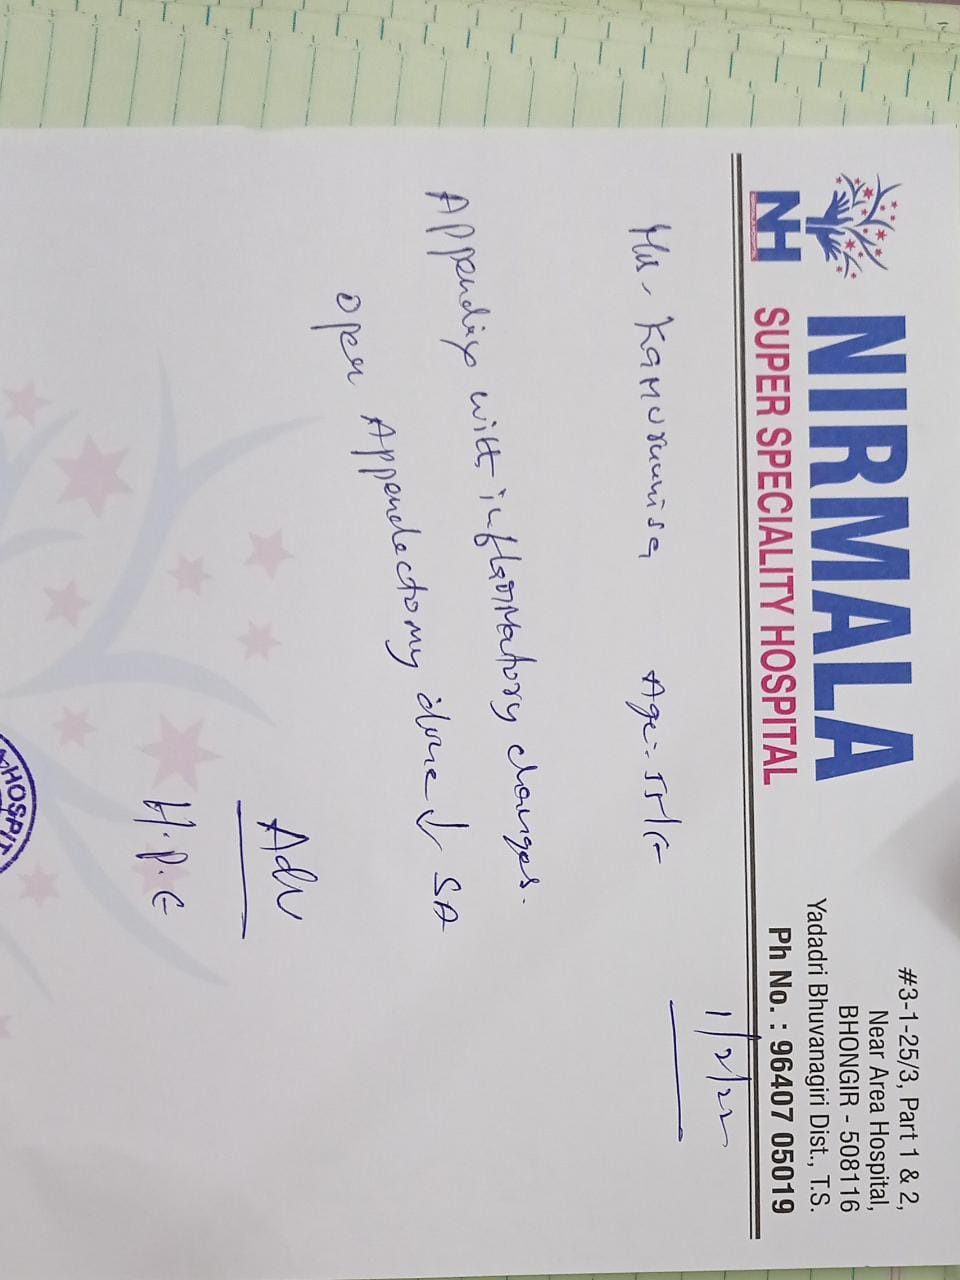 NIRMALA
SUPER SPECIALITY HOSPITAL
NH
#3-1-25/3, Part 1 & 2,
Near Area Hospital,
BHONGIR - 508116
Yadadri Bhuvanagiri Dist., T.S.
Ph No. : 96407 05019
1/2/22
Kamurunnisa Age:-
Appendix with inflammatory changes.
open Appendectomy done ↓ SA
Adv
H.P.E
HOSPIT